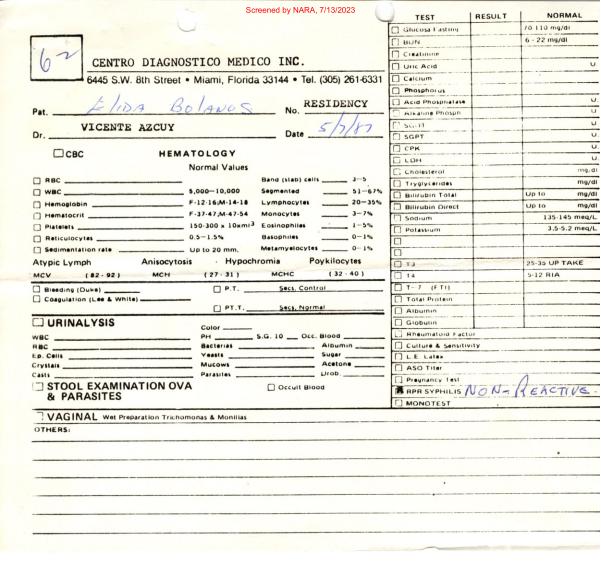 Screened by NARA, 7/13/2023
62
CENTRO DIAGNOSTICO MEDICO INC.
6445 S.W. 8th Street • Miami, Florida 33144 • Tel. (305) 261-6331
Pat. Elida Bolanos No. RESIDENCY
Dr. VICENTE AZCUY Date 5/7/87
CBC HEMATOLOGY
Normal Values
RBC Band (stab) cells 3-5
WBC 5,000-10,000 Segmented 51-67%
Hemoglobin F-12-16;M-14-18 Lymphocytes 20-35%
Hematocrit F-37-47;M-47-54 Monocytes 3-7%
Platelets 150-300 x 10xm³ Eosinophiles 1-5%
Reticulocytes 0.5-1.5% Basophiles 0-1%
Sedimentation rate Up to 20 mm. Metamyelocytes 0-1%
Atypic Lymph Anisocytosis Hypochromia Poykilocytes
MCV (82-92) MCH (27-31) MCHC (32-40)
Bleeding (Duke) P.T. Secs. Control
Coagulation (Lee & White)
PT.T. Secs. Normal
URINALYSIS Color
WBC PH S.G. 10 Occ. Blood
RBC Bacterias Albumin
Ep. Cells Yeasts Sugar
Crystals Mucows Acetone
Casts Parasites Urob.
STOOL EXAMINATION OVA Occult Blood
& PARASITES
VAGINAL Wet Preparation Trichomonas & Monilias
OTHERS:
TEST RESULT NORMAL
Glucosa Fasting 70-110 mg/dl
BUN 6-22 mg/dl
Creatinine
Uric Acid U.
Calcium
Phosphorus
Acid Phosphatase U.
Alkaline Phosph U.
SGOT U.
SGPT U.
CPK U.
LDH U.
Cholesterol mg/dl
Tryglycerides mg/dl
Bilirubin Total Up to mg/dl
Bilirubin Direct Up to mg/dl
Sodium 135-145 meq/L
Potassium 3.5-5.2 meq/L
T3 25-35 UP TAKE
T4 5-12 RIA
T-7 (FTI)
Total Protein
Albumin
Globulin
Rheumatoid Factor
Culture & Sensitivity
L.E. Latex
ASO Titer
Pregnancy Test
RPR SYPHILIS NON-REACTIVE.
MONOTEST